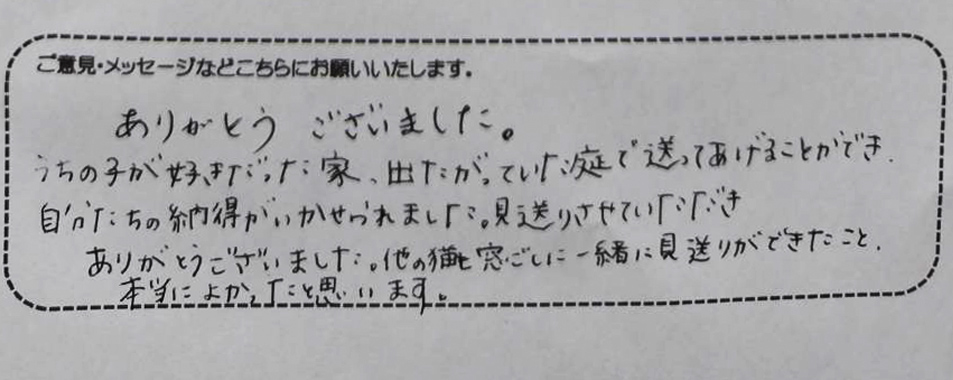 ご意見・メッセージなどこちらにお願いいたします。
ありがとう ございました。
うちの子が好きだった家、出たがっていた庭で送ってあげることができ、
自分たちの納得がいかせられました。見送りさせていただき
ありがとうございました。他の猫も窓ごしに一緒に見送りができたこと、
本当によかったと思います。